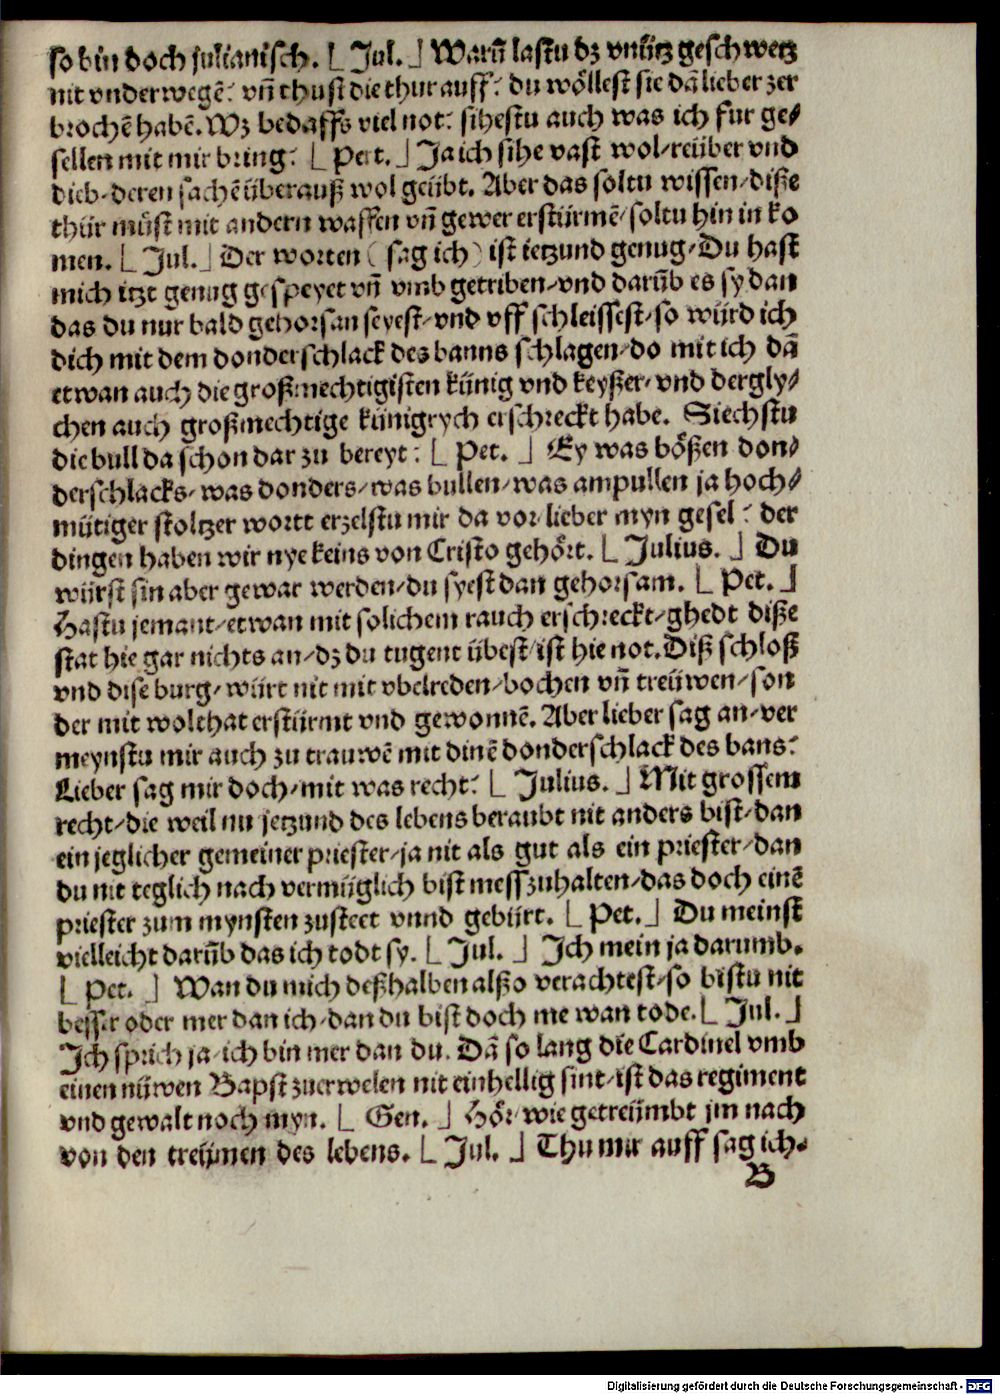 so bin doch julianisch. [ Jul. ] Warū lastu dz vnůtz geschwetz
nit vnderwegē: vn̄ thust die thur auff: du wöllest sie dā lieber zer
brochē habē. Wz bedaffs viel not: sihestu auch was ich fur ge/
sellen mit mir bring: [ Pet. ] Ja ich sihe vast wol/reüber vnd
dieb/deren sachē überauß wol geübt. Aber das soltu wissen/diße
thür müst mit andern waffen vn̄ gewer erstürmē/soltu hin in ko
men. [ Jul. ] Der worten (sag ich) ist ietzund genug/Du hast
mich itzt genug gespeyet vn̄ vmb getriben/vnd darūb es sy dan
das du nur bald gehorsan seyest/vnd vff schleissest/so würd ich
dich mit dem donderschlack des banns schlagen/do mit ich dā
etwan auch die großmechtigisten künig vnd keyßer/vnd dergly/
chen auch großmechtige künigrych erschreckt habe. Siechstu
die bull da schon dar zu bereyt: [ Pet. ] Ey was bößen don/
derschlacks/was donders/was bullen/was ampullen ja hoch/
mütiger stoltzer wortt erzelstu mir da vor/lieber myn gesel: der
dingen haben wir nye keins von Cristo gehört. [ Julius. ] Du
würst sin aber gewar werden/du syest dan gehorsam. [ Pet. ]
Hastu jemant/etwan mit solichem rauch erschreckt/ghedt diße
stat hie gar nichts an/dz du tugent übest/ist hie not. Diß schloß
vnd dise burg/würt nit mit vbelreden/bochen vn̄ treüwen/son
der mit wolthat erstürmt vnd gewonnē. Aber lieber sag an/ver
meynstu mir auch zu trauwē mit dinē donderschlack des bans:
Lieber sag mir doch/mit was recht: [ Julius. ] Mit grossem
recht/die weil nu jetzund des lebens beraubt nit anders bist/dan
ein jeglicher gemeiner priester/ja nit als gut als ein priester/dan
du nit teglich nach vermüglich bist mess zuhalten/das doch einē
priester zum mynsten zusteet vnnd gebürt. [ Pet. ] Du meinst
vielleicht darūb das ich todt sy. [ Jul. ] Ich mein ja darumb.
[ Pet. ] Wan du mich deßhalben alßo verachtest/so bistu nit
besser oder mer dan ich/dan du bist doch me wan tode. [ Jul. ]
Ich sprich ja/ich bin mer dan du. Dā so lang die Cardinel vmb
einen nüwen Bapst zuerwelen nit einhellig sint/ist das regiment
vnd gewalt noch myn. [ Gen. ] Hör/wie getreümbt jm nach
von den treümen des lebens. [ Jul. ] Thu mir auff sag ich.
B
Digitalisierung gefördert durch die Deutsche Forschungsgemeinschaft - DFG